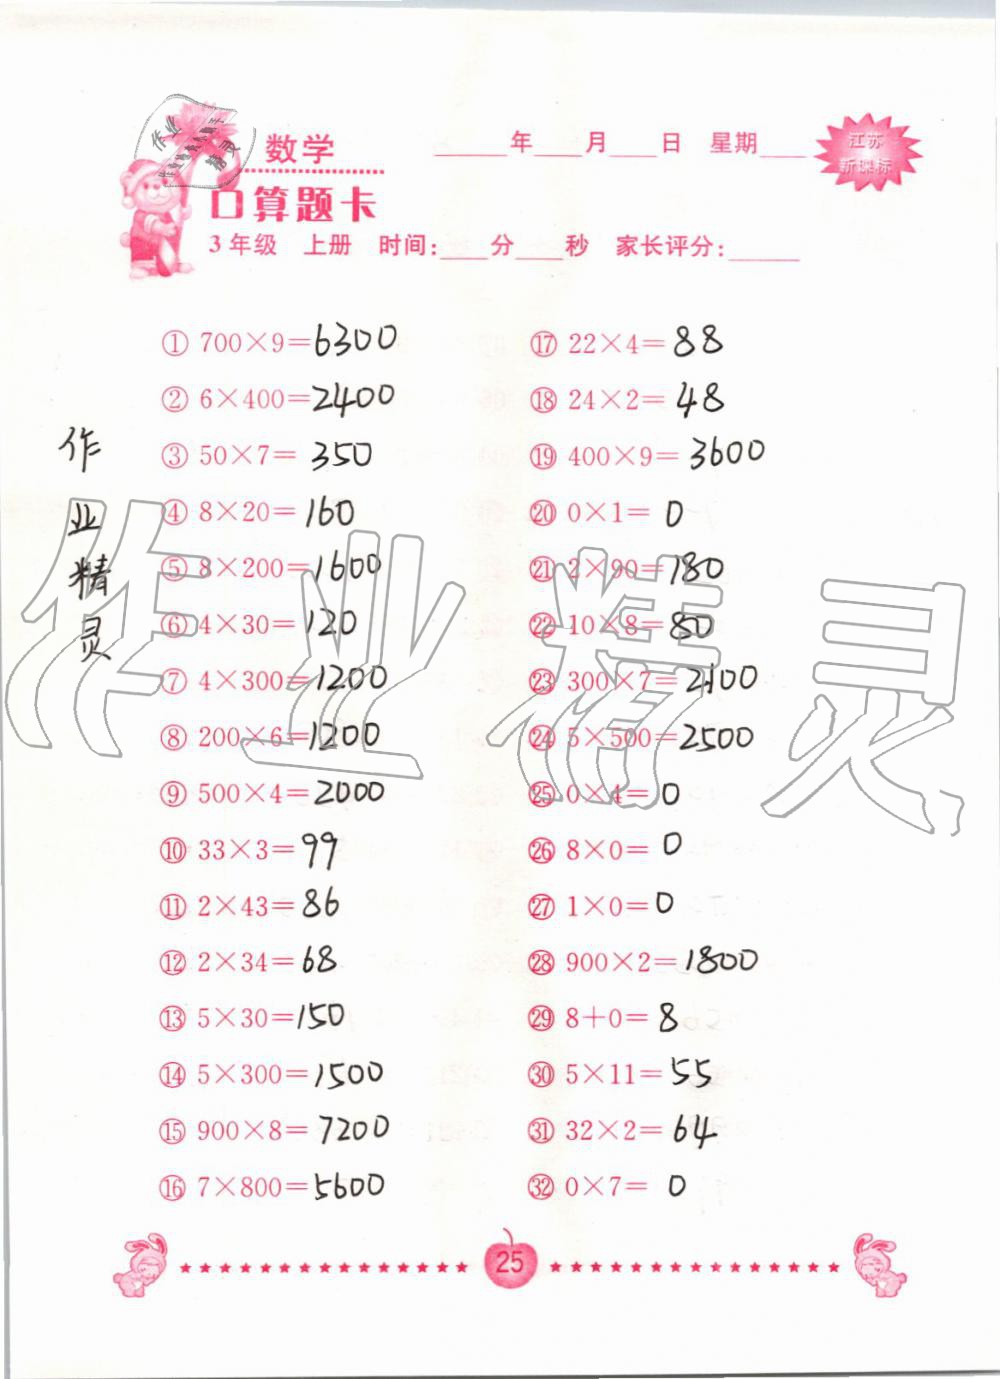 数学
____年____月____日 星期____
江苏
新课标
口算题卡
3年级 上册 时间:____分____秒 家长评分:____
① 700×9=6300
② 6×400=2400
③ 50×7=350
④ 8×20=160
⑤ 8×200=1600
⑥ 4×30=120
⑦ 4×300=1200
⑧ 200×6=1200
⑨ 500×4=2000
⑩ 33×3=99
⑪ 2×43=86
⑫ 2×34=68
⑬ 5×30=150
⑭ 5×300=1500
⑮ 900×8=7200
⑯ 7×800=5600
⑰ 22×4=88
⑱ 24×2=48
⑲ 400×9=3600
⑳ 0×1=0
㉑ 2×90=180
㉒ 10×8=80
㉓ 300×7=2100
㉔ 5×500=2500
㉕ 0×4=0
㉖ 8×0=0
㉗ 1×0=0
㉘ 900×2=1800
㉙ 8+0=8
㉚ 5×11=55
㉛ 32×2=64
㉜ 0×7=0
作
业
精
灵
作业精灵
25